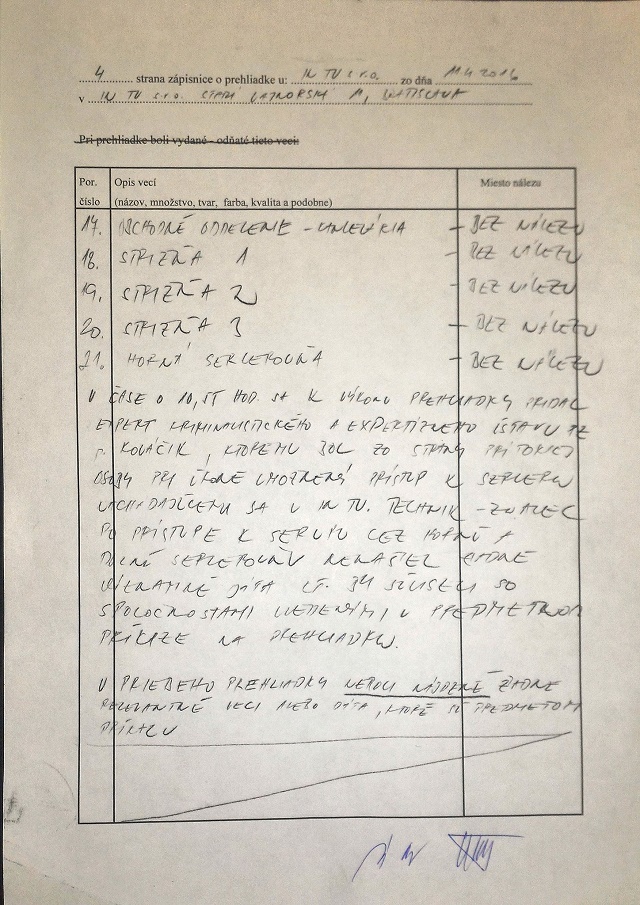 4 strana zápisnice o prehliadke u: IN TV s.r.o. zo dňa 11.4.2016
v IN TV s.r.o. STARÁ VAJNORSKÁ BRATISLAVA
Pri prehliadke boli vydané - odňaté tieto veci:
Por. číslo Opis vecí (názov, množstvo, tvar, farba, kvalita a podobne) Miesto nálezu
17. OBCHODNÉ ODDELENIE - KANCELÁRIA - BEZ NÁLEZU
18. STRIŽŇA 1 - BEZ NÁLEZU
19. STRIŽŇA 2 - BEZ NÁLEZU
20. STRIŽŇA 3 - BEZ NÁLEZU
21. HORNÁ SERVEROVŇA - BEZ NÁLEZU
V ČASE O 10,55 HOD. SA K VÝKONU PREHLIADKY PRIDAL
EXPERT KRIMINALISTICKÉHO A EXPERTÍZNEHO ÚSTAVU PZ
p. KOVÁČIK, KTORÉMU BOL ZO STRANY PRÍTOMNEJ
OSOBY PRI ÚKONE UMOŽNENÝ PRÍSTUP K SERVERU
NACHÁDZAJÚCEMU SA V IN TV. TECHNIK - ZNALEC
PO PRÍSTUPE K SERVRU CEZ HORNÚ A
DOLNÚ SERVEROVŇU NENAŠIEL ŽIADNE
DÁTA SÚVISELI SO
SPOLOČNOSTAMI UVEDENÝMI V PREDMETNOM
PRÍKAZE NA PREHLIADKU.
V PRIEBEHU PREHLIADKY NEBOLI NÁJDENÉ ŽIADNE
RELEVANTNÉ VECI ALEBO DÁTA, KTORÉ SÚ PREDMETOM
PRÍKAZU